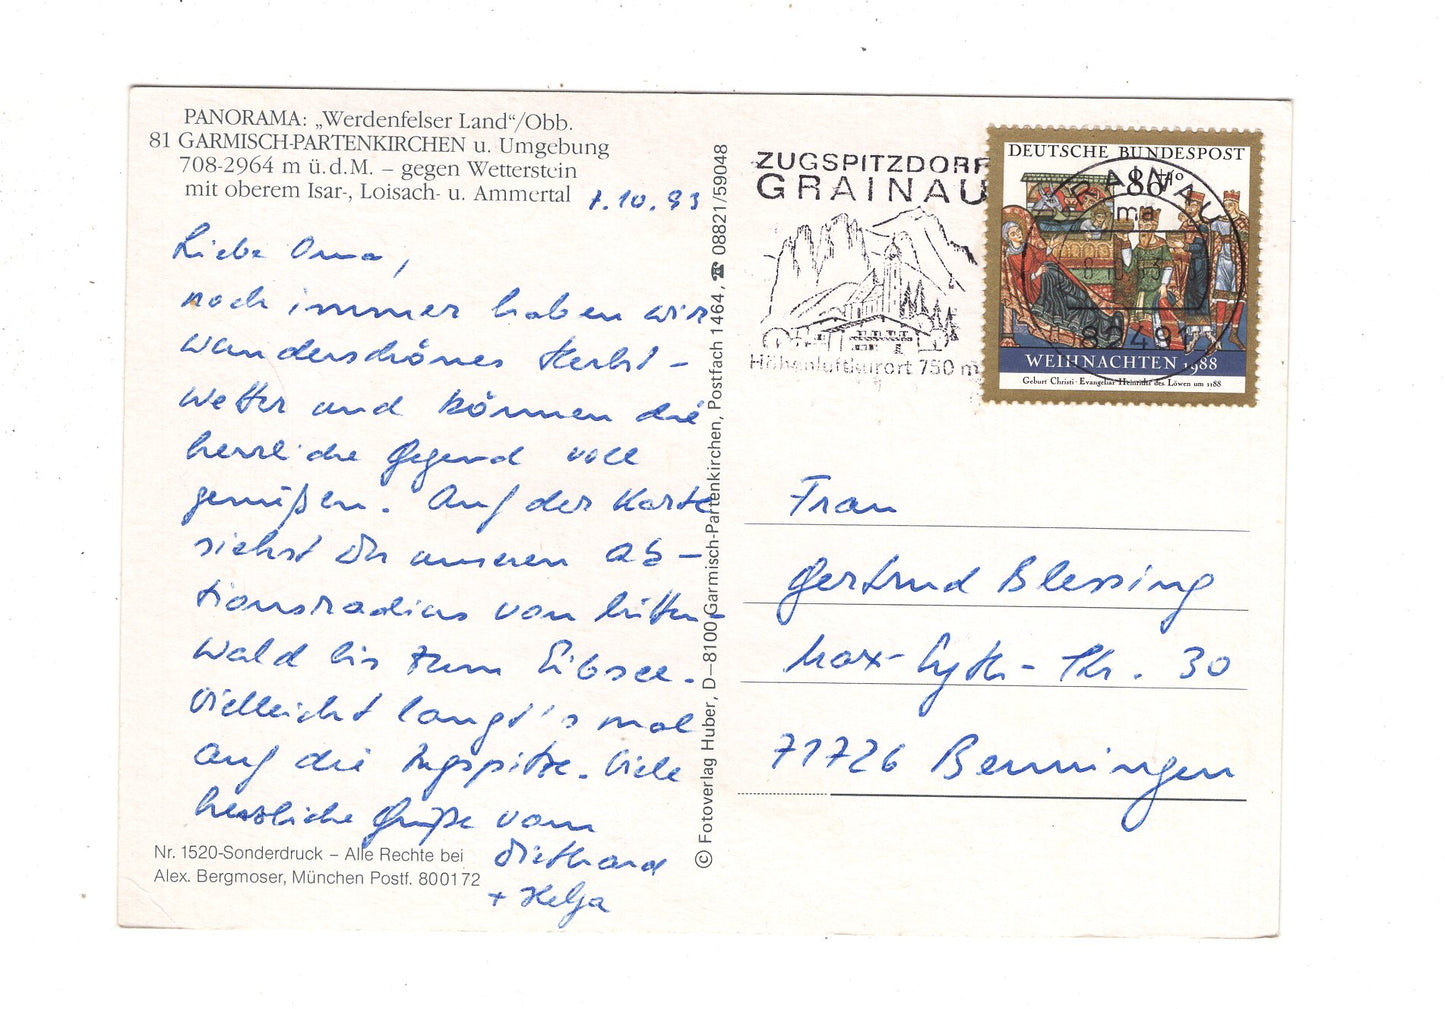 PANORAMA: „Werdenfelser Land“/Obb.
81 GARMISCH-PARTENKIRCHEN u. Umgebung
708-2964 m ü.d.M. – gegen Wetterstein
mit oberem Isar-, Loisach- u. Ammertal
7.10.93
Liebe Oma,
noch immer haben wir
wunderschönes Herbst-
wetter und können die
herrliche Gegend voll
genießen. Auf der Karte
siehst Du unseren Ak-
tionsradius von Mitten-
wald bis zum Eibsee.
Vielleicht langt's mal
auf die Zugspitze. Viele
herzliche Grüße von
Diethard
+ Helga
Nr. 1520-Sonderdruck – Alle Rechte bei
Alex. Bergmoser, München Postf. 800172
© Fotoverlag Huber, D–8100 Garmisch-Partenkirchen, Postfach 1464, ☎ 08821/59048
ZUGSPITZDORF
GRAINAU
Höhenluftkurort 750 m
DEUTSCHE BUNDESPOST
80+40
WEIHNACHTEN 1988
Geburt Christi · Evangeliar Heinrichs des Löwen um 1188
GRAINAU
ma
82491
Frau
Gertrud Blessing
Max-Eyth-Str. 30
71726 Benningen